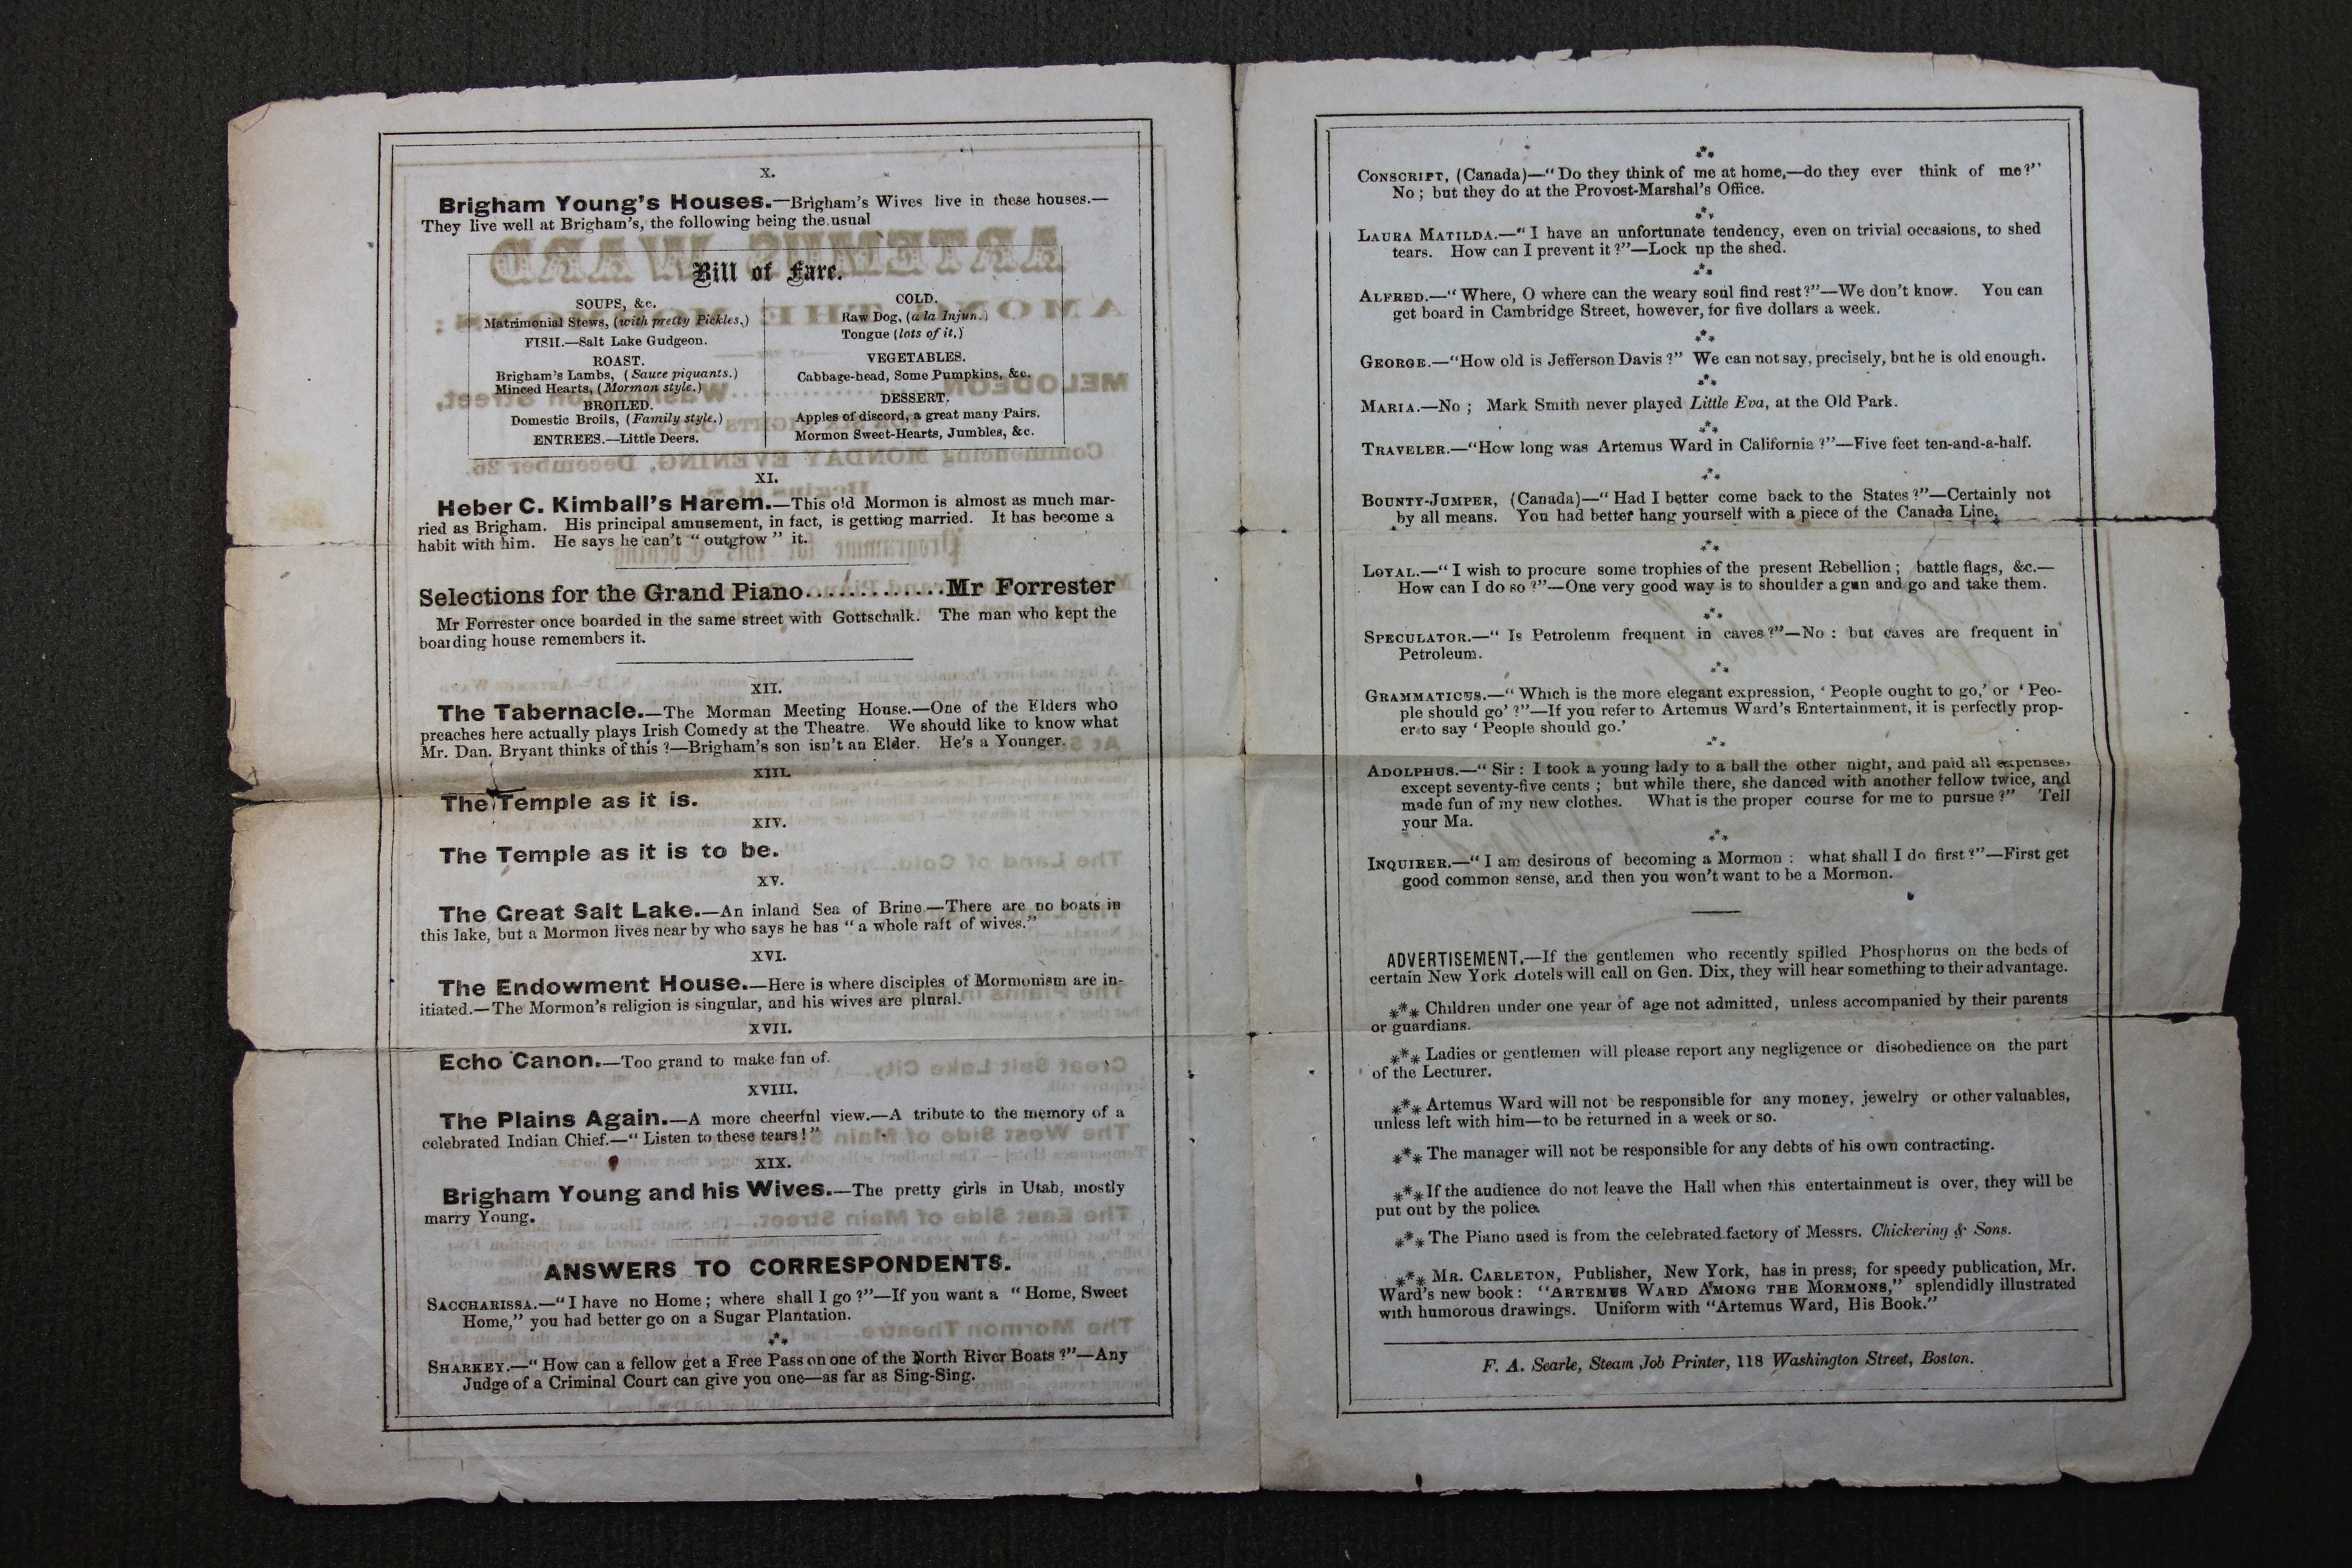 X.
Brigham Young's Houses.—Brigham's Wives live in these houses.—
They live well at Brigham's, the following being the usual
Bill of Fare.
SOUPS, &c.
Matrimonial Stews, (with pretty Pickles.)
FISH.—Salt Lake Gudgeon.
ROAST.
Brigham's Lambs, (Sauce piquants.)
Minced Hearts, (Mormon style.)
BROILED.
Domestic Broils, (Family style.)
ENTREES.—Little Deers.
COLD.
Raw Dog, (a la Injun.)
Tongue (lots of it.)
VEGETABLES.
Cabbage-head, Some Pumpkins, &c.
DESSERT.
Apples of discord, a great many Pairs.
Mormon Sweet-Hearts, Jumbles, &c.
XI.
Heber C. Kimball's Harem.—This old Mormon is almost as much mar-
ried as Brigham. His principal amusement, in fact, is getting married. It has become a
habit with him. He says he can't "outgrow" it.
Selections for the Grand Piano.............Mr Forrester
Mr Forrester once boarded in the same street with Gottschalk. The man who kept the
boarding house remembers it.
XII.
The Tabernacle.—The Morman Meeting House.—One of the Elders who
preaches here actually plays Irish Comedy at the Theatre. We should like to know what
Mr. Dan. Bryant thinks of this?—Brigham's son isn't an Elder. He's a Younger.
XIII.
The Temple as it is.
XIV.
The Temple as it is to be.
XV.
The Great Salt Lake.—An inland Sea of Brine.—There are no boats in
this lake, but a Mormon lives near by who says he has "a whole raft of wives."
XVI.
The Endowment House.—Here is where disciples of Mormonism are in-
itiated.—The Mormon's religion is singular, and his wives are plural.
XVII.
Echo Canon.—Too grand to make fun of.
XVIII.
The Plains Again.—A more cheerful view.—A tribute to the memory of a
celebrated Indian Chief.—"Listen to these tears!"
XIX.
Brigham Young and his Wives.—The pretty girls in Utah, mostly
marry Young.
ANSWERS TO CORRESPONDENTS.
SACCHARISSA.—"I have no Home; where shall I go?"—If you want a "Home, Sweet
Home," you had better go on a Sugar Plantation.
⁂
SHARKEY.—"How can a fellow get a Free Pass on one of the North River Boats?"—Any
Judge of a Criminal Court can give you one—as far as Sing-Sing.
⁂
CONSCRIPT, (Canada)—"Do they think of me at home,—do they ever think of me?"
No; but they do at the Provost-Marshal's Office.
⁂
LAURA MATILDA.—"I have an unfortunate tendency, even on trivial occasions, to shed
tears. How can I prevent it?"—Lock up the shed.
⁂
ALFRED.—"Where, O where can the weary soul find rest?"—We don't know. You can
get board in Cambridge Street, however, for five dollars a week.
⁂
GEORGE.—"How old is Jefferson Davis?" We can not say, precisely, but he is old enough.
⁂
MARIA.—No; Mark Smith never played Little Eva, at the Old Park.
⁂
TRAVELER.—"How long was Artemus Ward in California?"—Five feet ten-and-a-half.
⁂
BOUNTY-JUMPER, (Canada)—"Had I better come back to the States?"—Certainly not
by all means. You had better hang yourself with a piece of the Canada Line.
⁂
LOYAL.—"I wish to procure some trophies of the present Rebellion; battle flags, &c.—
How can I do so?"—One very good way is to shoulder a gun and go and take them.
⁂
SPECULATOR.—"Is Petroleum frequent in caves?"—No: but caves are frequent in
Petroleum.
⁂
GRAMMATICUS.—"Which is the more elegant expression, 'People ought to go,' or 'Peo-
ple should go'?"—If you refer to Artemus Ward's Entertainment, it is perfectly prop-
er to say 'People should go.'
⁂
ADOLPHUS.—"Sir: I took a young lady to a ball the other night, and paid all expenses,
except seventy-five cents; but while there, she danced with another fellow twice, and
made fun of my new clothes. What is the proper course for me to pursue?" Tell
your Ma.
⁂
INQUIRER.—"I am desirous of becoming a Mormon: what shall I do first?"—First get
good common sense, and then you won't want to be a Mormon.
ADVERTISEMENT.—If the gentlemen who recently spilled Phosphorus on the beds of
certain New York Hotels will call on Gen. Dix, they will hear something to their advantage.
⁂ Children under one year of age not admitted, unless accompanied by their parents
or guardians.
⁂ Ladies or gentlemen will please report any negligence or disobedience on the part
of the Lecturer.
⁂ Artemus Ward will not be responsible for any money, jewelry or other valuables,
unless left with him—to be returned in a week or so.
⁂ The manager will not be responsible for any debts of his own contracting.
⁂ If the audience do not leave the Hall when this entertainment is over, they will be
put out by the police.
⁂ The Piano used is from the celebrated factory of Messrs. Chickering & Sons.
⁂ MR. CARLETON, Publisher, New York, has in press, for speedy publication, Mr.
Ward's new book: "ARTEMUS WARD AMONG THE MORMONS," splendidly illustrated
with humorous drawings. Uniform with "Artemus Ward, His Book."
F. A. Searle, Steam Job Printer, 118 Washington Street, Boston.